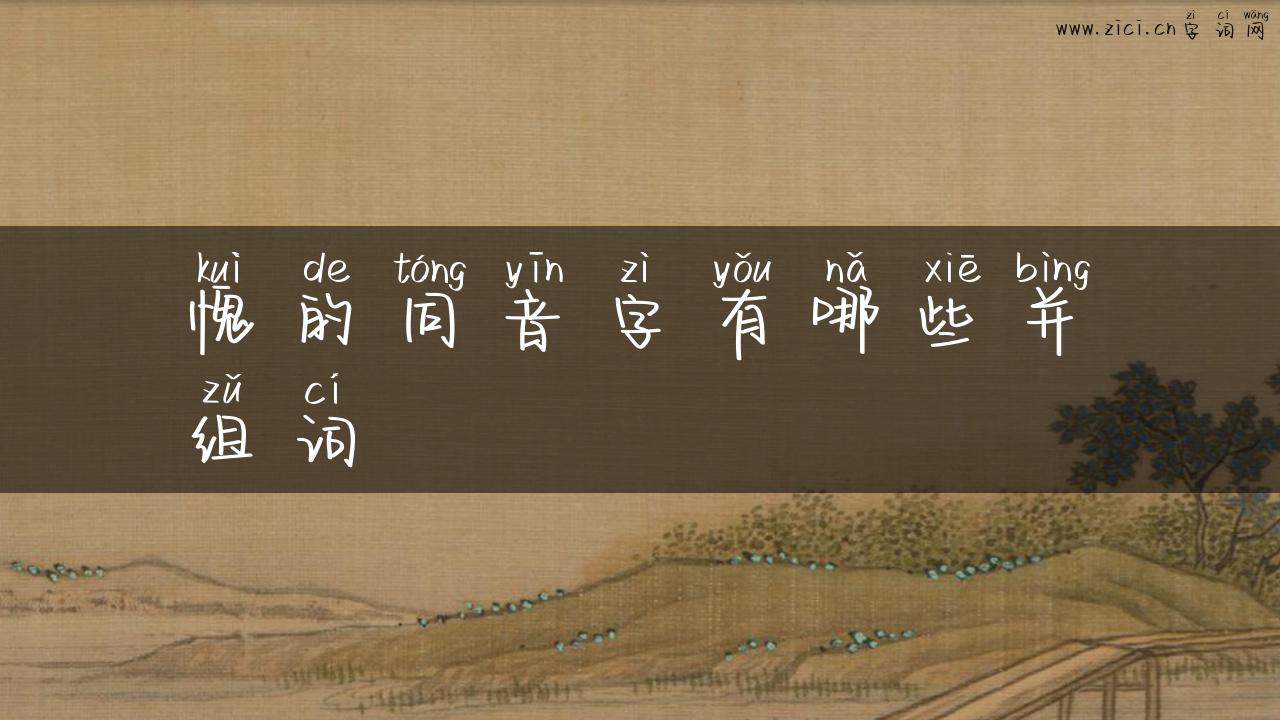 zì cí wǎng
www.zici.cn 字词网
kuì de tóng yīn zì yǒu nǎ xiē bìng
愧的同音字有哪些并
zǔ cí
组词